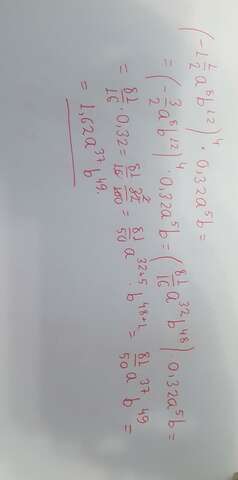 (-1 1/2 a⁸b¹²)⁴ · 0,32a⁵b =
= (-3/2 a⁸b¹²)⁴ · 0,32a⁵b = (81/16 a³²b⁴⁸) · 0,32a⁵b =
= 81/16 · 0,32 = 81/16 · 32/100 2 = 81/50 a³²⁺⁵ · b⁴⁸⁺¹ = 81/50 a³⁷ b⁴⁹ =
= 1,62a³⁷b⁴⁹.